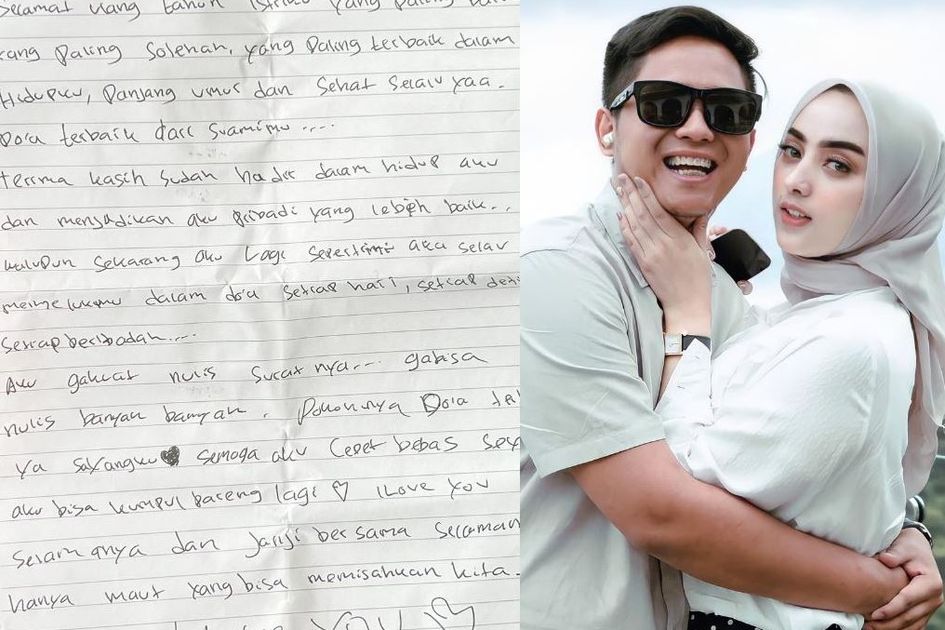 Selamat ulang tahun istriku yang paling
yang paling solehah, yang paling terbaik dalam
Hidupku, Panjang umur dan Sehat selalu yaa.
Do'a terbaik dari Suamimu ....
terima kasih sudah hadir dalam hidup aku
dan menjadikan aku pribadi yang lebih baik..
walupun sekarang aku lagi seperti ini aku selalu
memelukmu dalam do'a setiap hari, setiap deti
setiap beribadah....
Aku gakuat nulis surat nya... gabisa
nulis banyak banyak. Pokoknya Do'a
ya sayangku🖤 semoga aku Cepet bebas
aku bisa kumpul bareng lagi ♡ I Love You
Selamanya dan janji bersama selaman
hanya maut yang bisa memisahkan kita.